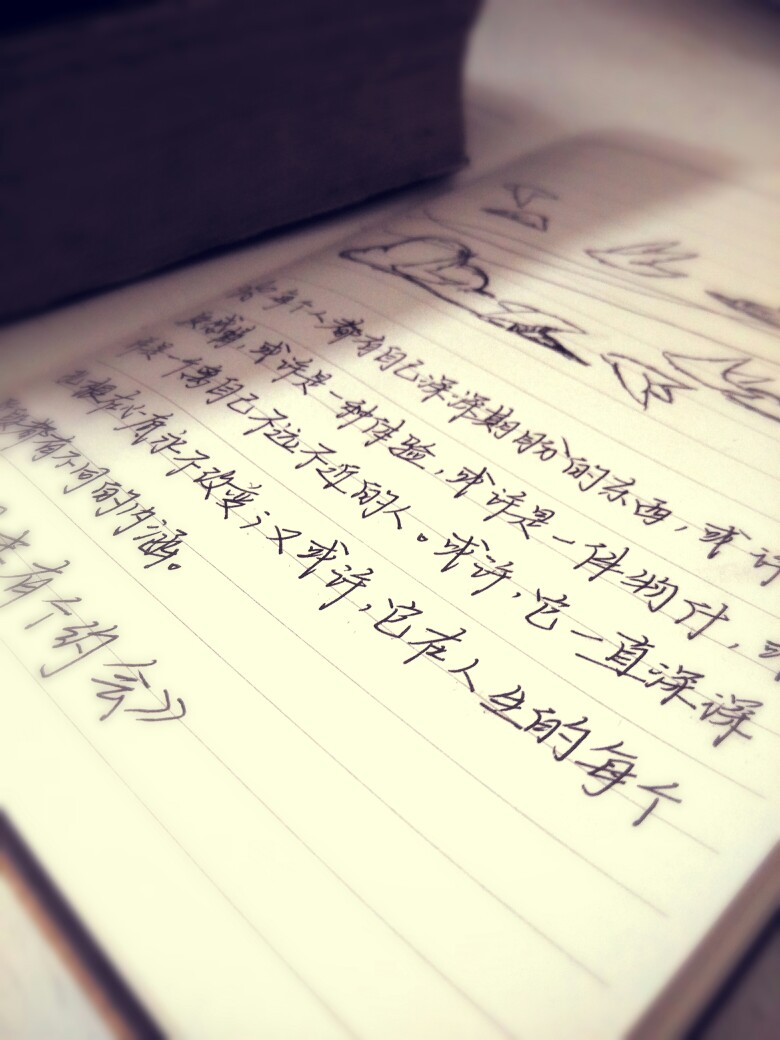 每个人都有自己深深期盼的东西，或许
或许是一种体验，或许是一件物什，或
许是一个离自己不远不近的人。或许，它一直深深
心底永不改变；又或许，它在人生的每个
都有不同的内涵。
有个约会》